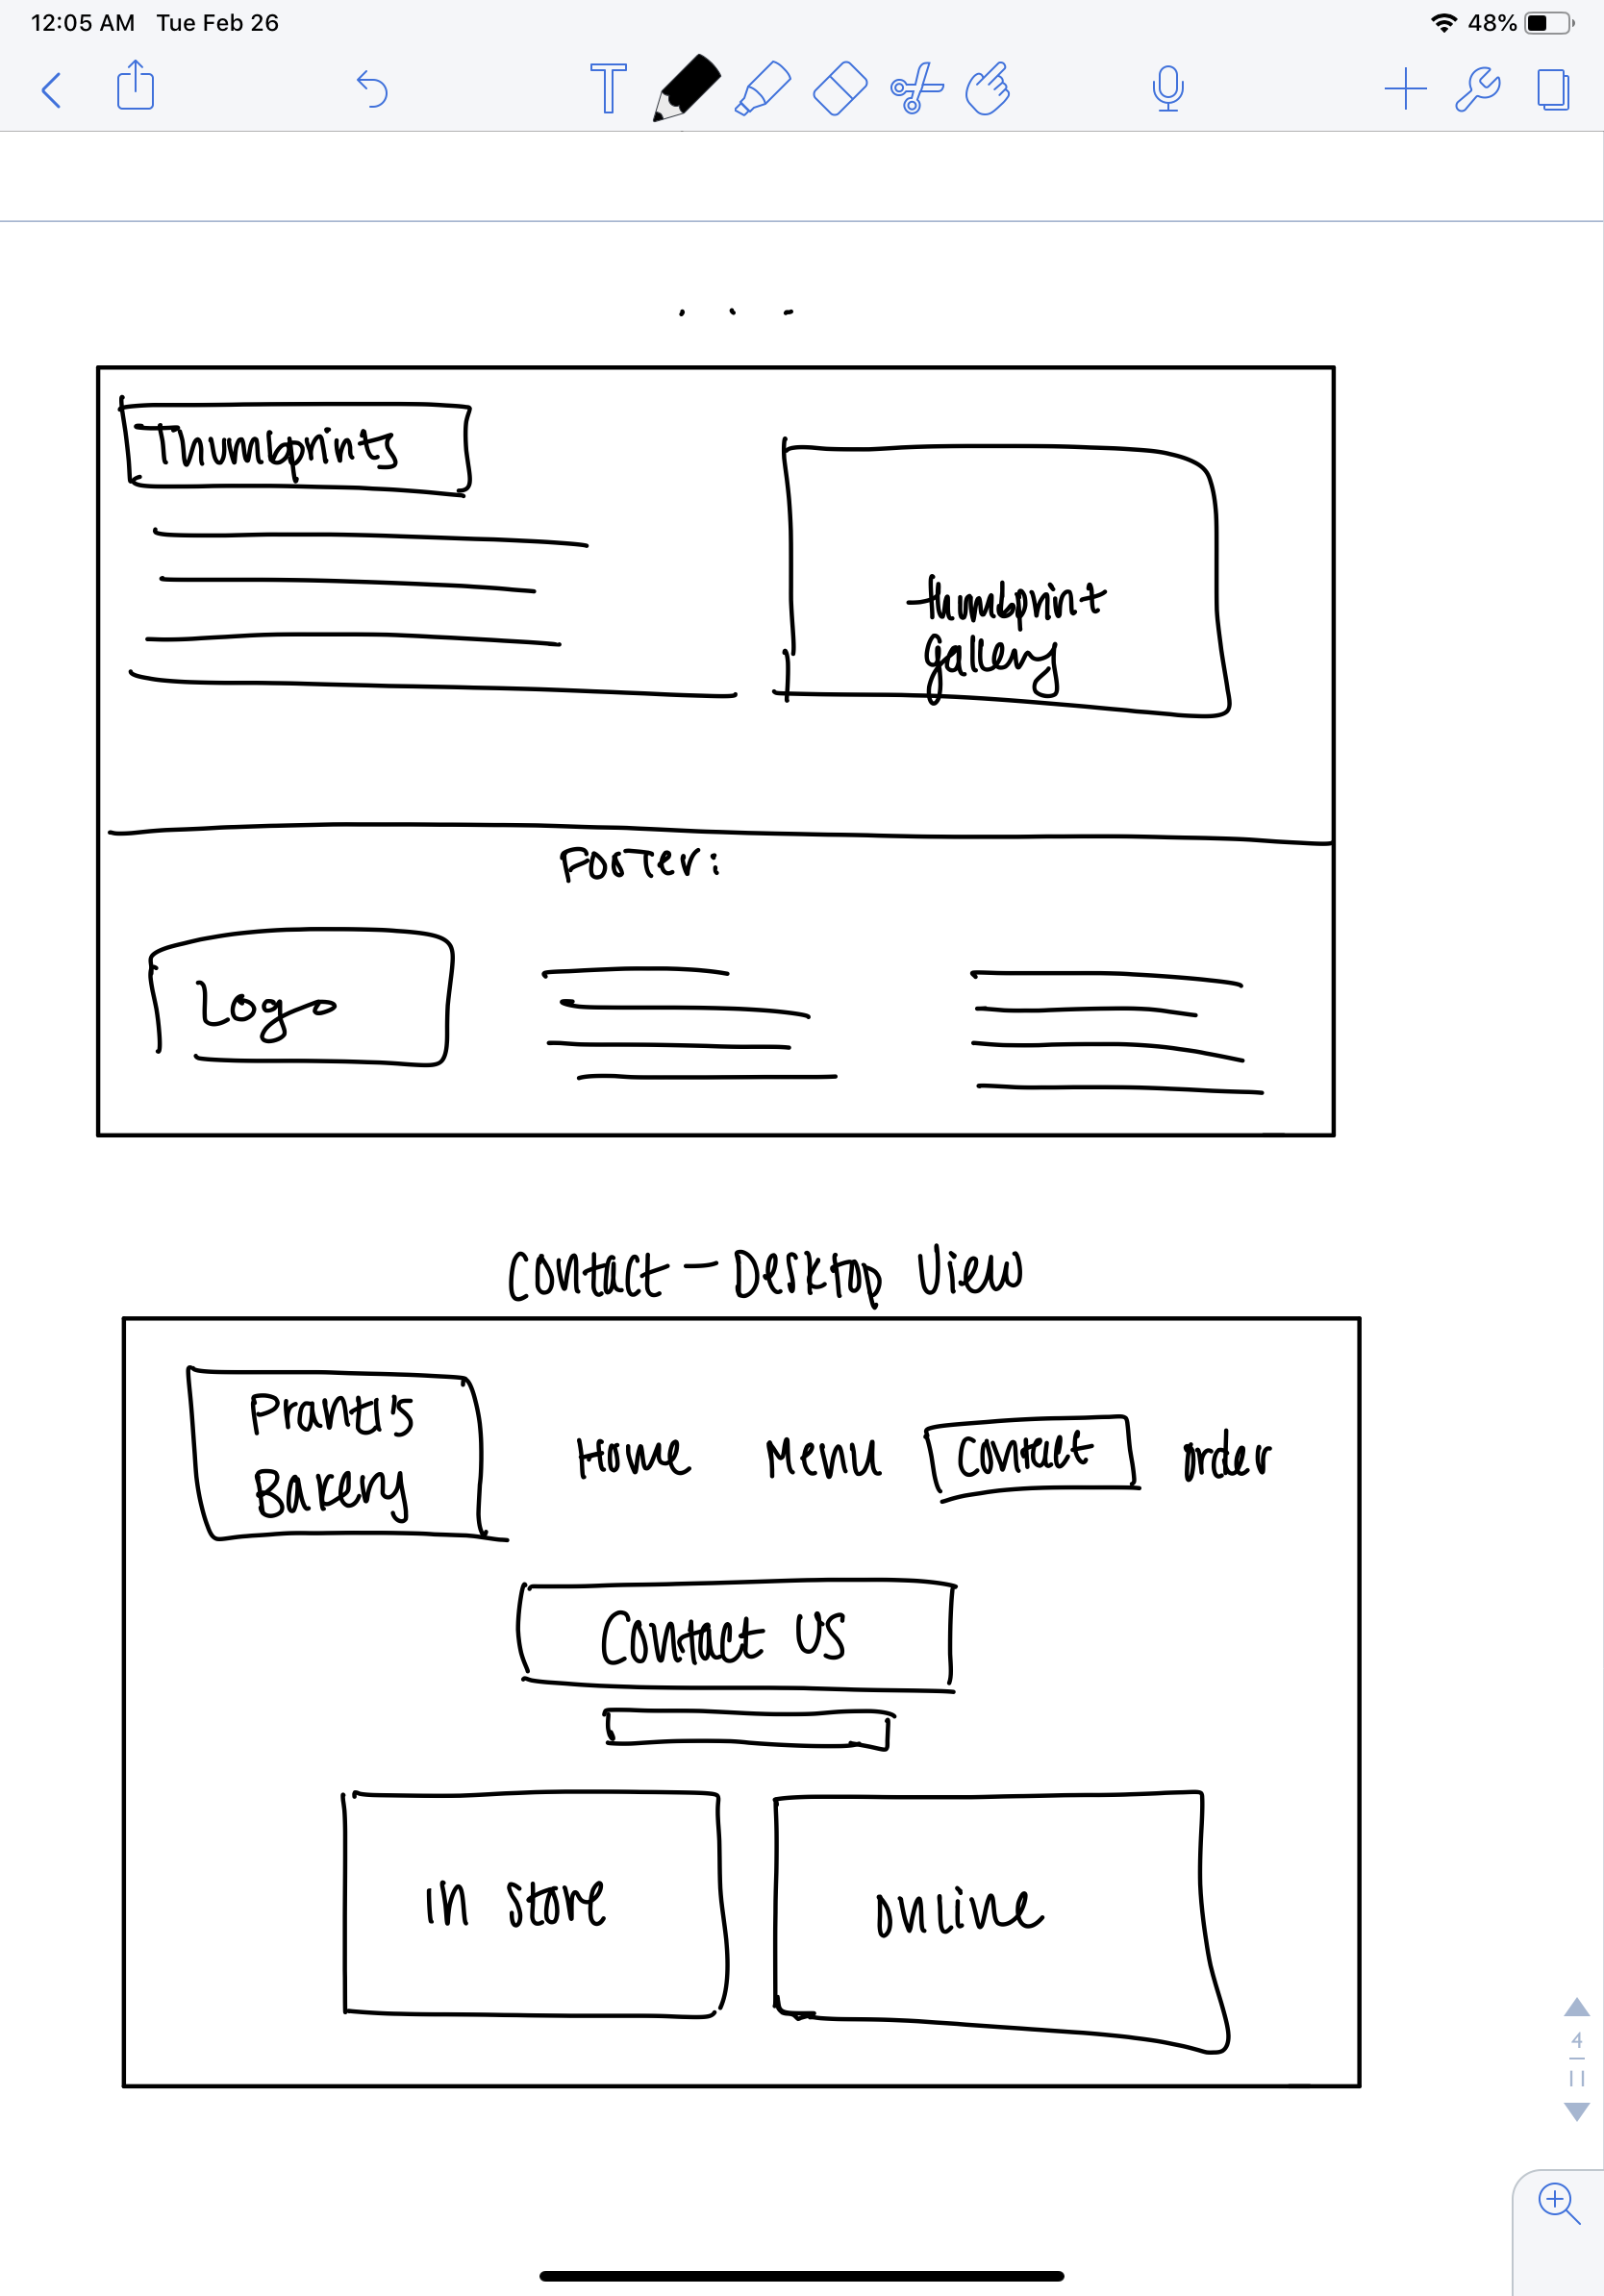 12:05 AM Tue Feb 26
48%
. . .
Thumbprints
thumbprint
gallery
Footer:
Logo
Contact - Desktop View
Pranti's
Bakery
Home Menu Contact order
Contact us
in store
online
4
11